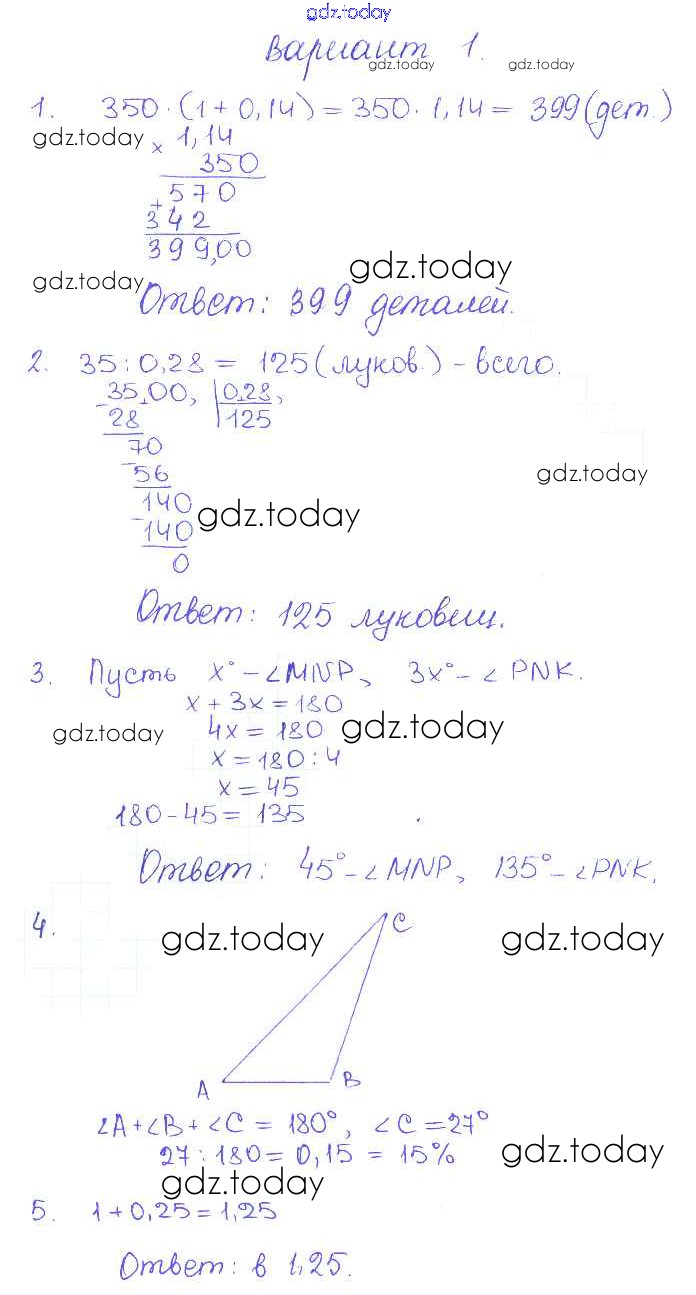 gdz.today
Вариант 1.
gdz.today gdz.today
1. 350·(1+0,14)=350·1,14= 399(дет.)
gdz.today × 1,14
350
+ 570
342
399,00
gdz.today gdz.today
Ответ: 399 деталей.
2. 35:0,28= 125(луков.)-всего.
35,00, 0,28,
- 28 125
70
- 56 gdz.today
140 gdz.today
- 140
0
Ответ: 125 луковиц.
3. Пусть x°-∠MNP, 3x°-∠PNK.
x+3x=180
gdz.today 4x=180 gdz.today
x=180:4
x=45
180-45=135
Ответ: 45°-∠MNP, 135°-∠PNK.
4. gdz.today C gdz.today
A B
∠A+∠B+∠C= 180°, ∠C=27°
27:180=0,15=15% gdz.today
gdz.today
5. 1+0,25=1,25
Ответ: в 1,25.